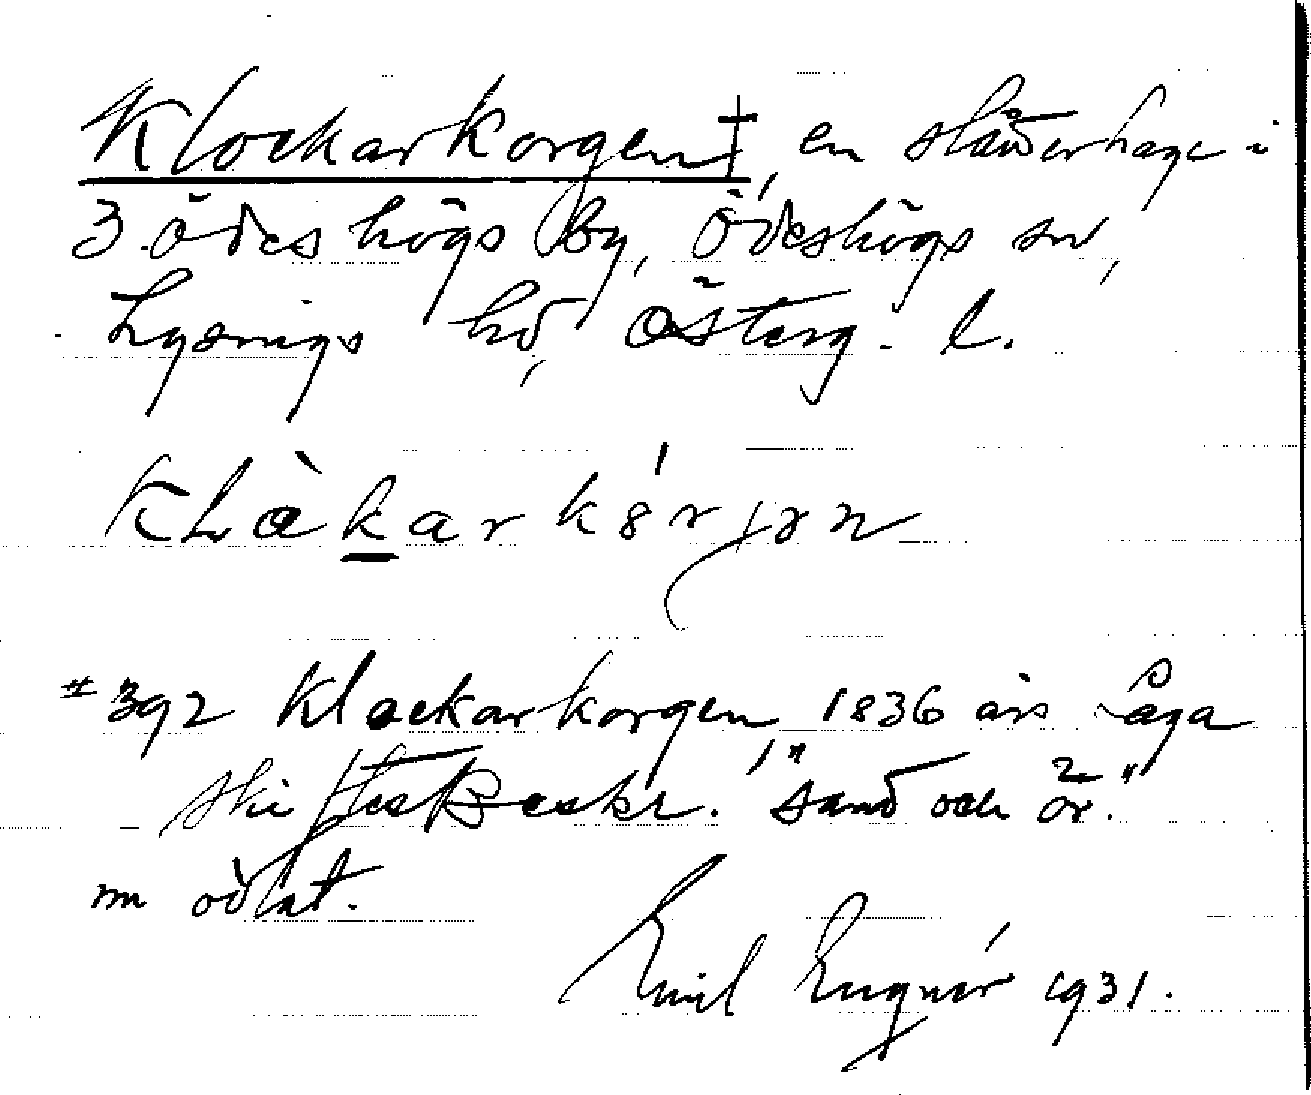 Klockarkorgen‡, en slåtterhage i
3. ödeshögs By, Ödeshögs sn,
Lysings hd, Österg. l.
Klàkarkórjən
#392 Klockarkorgen, 1836 års Laga
skiftesBeskr. "Sand och ör."
nu odlat.
Emil Engnér 1931.